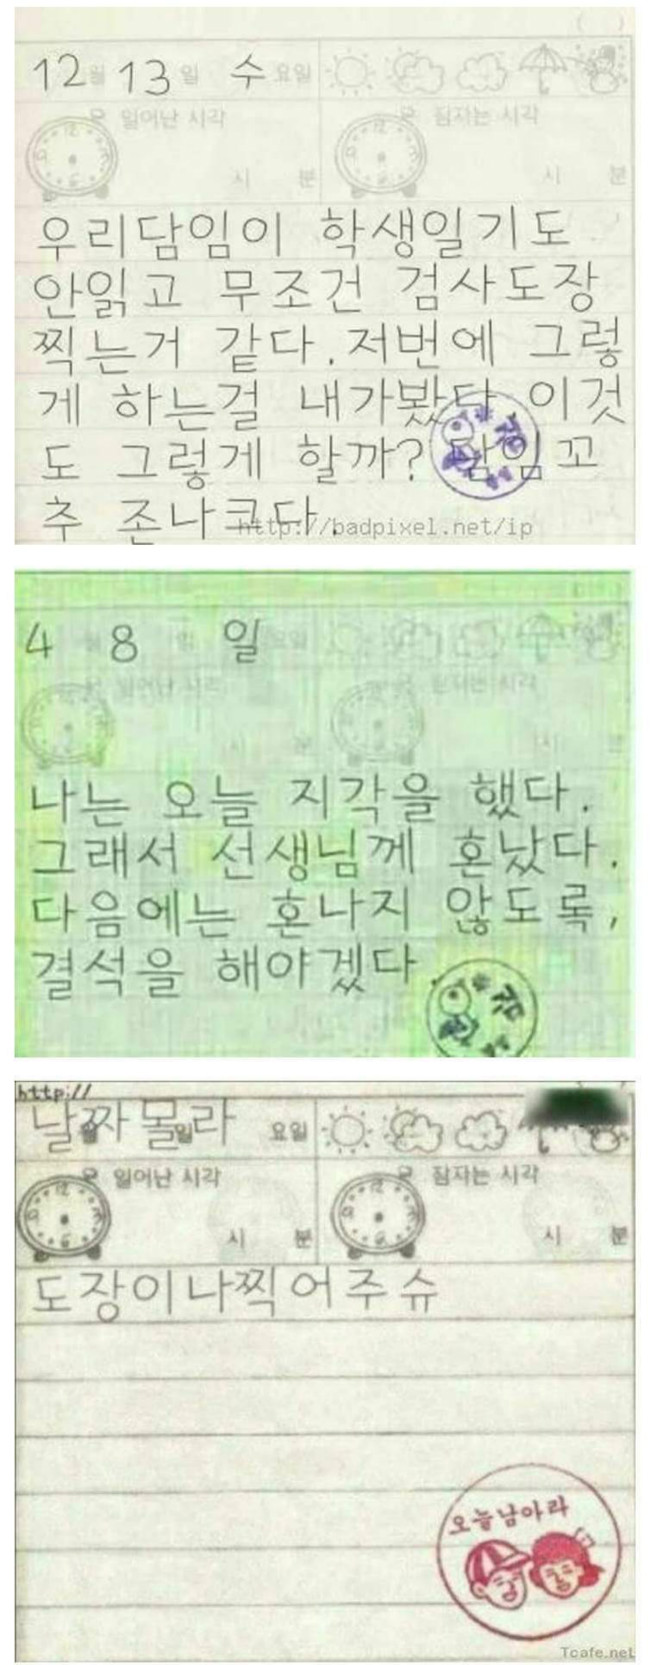 12월 13일 수요일
일어난 시각 잠자는 시각
시 분 시 분
우리담임이 학생일기도
안읽고 무조건 검사도장
찍는거 같다. 저번에 그렇
게 하는걸 내가봤다. 이것
도 그렇게 할까? 담임꼬
추 존나크다.
http://badpixel.net/ip
4월 8일 일요일
일어난 시각 잠자는 시각
시 분
나는 오늘 지각을 했다.
그래서 선생님께 혼났다.
다음에는 혼나지 않도록,
결석을 해야겠다.
http://
날짜몰라 요일
일어난 시각 잠자는 시각
시 분 시 분
도장이나찍어주슈
오늘남아라
Tcafe.net